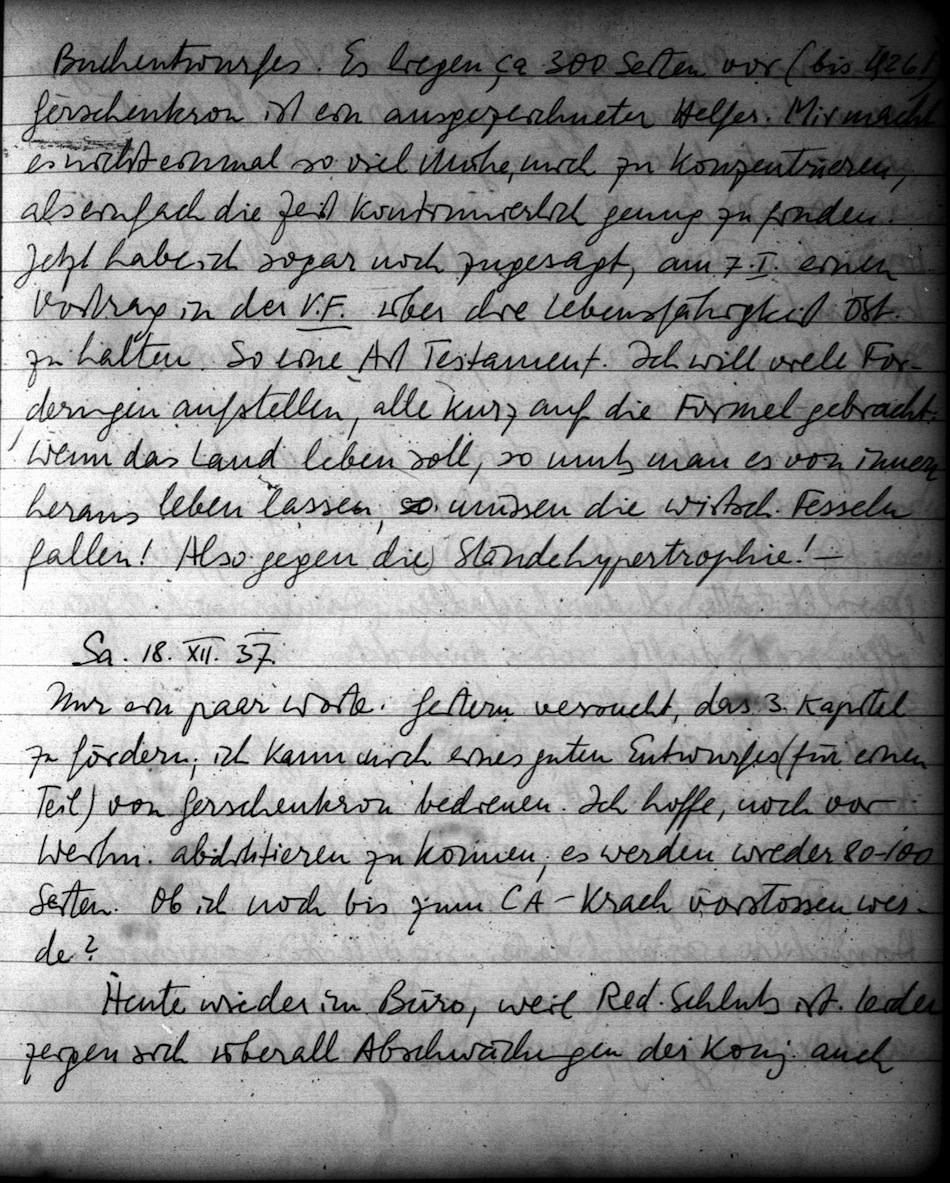 Buchentwurfes. Es liegen ca 300 Seiten vor (bis 1926!)
Gerschenkron ist ein ausgezeichneter Helfer. Mir macht
es nicht einmal so viel Mühe, mich zu konzentrieren,
als einfach die Zeit kontinuierlich genug zu finden.
Jetzt habe ich sogar noch zugesagt, am 7. I. einen
Vortrag in der V.F. über die Lebensfähigkeit Öst.
zu halten. So eine Art Testament. Ich will viele For-
derungen aufstellen, alle kurz auf die Formel gebracht:
wenn das Land leben soll, so muß man es von innen
heraus leben lassen, so müssen die wirtsch. Fesseln
fallen! Also gegen die Ständehypertrophie! —
Sa. 18. XII. 37.
Nur ein paar Worte. Gestern versucht, das 3. Kapitel
zu fördern, ich kann mich eines guten Entwurfes (für einen
Teil) von Gerschenkron bedienen. Ich hoffe, noch vor
Weihn. abdiktieren zu können, es werden wieder 80-100
Seiten. Ob ich noch bis zum CA-Krach vorstossen wer-
de?
Heute wieder im Büro, weil Red. Schluß ist. Leider
zeigen sich überall Abschwächungen der Konj. auch